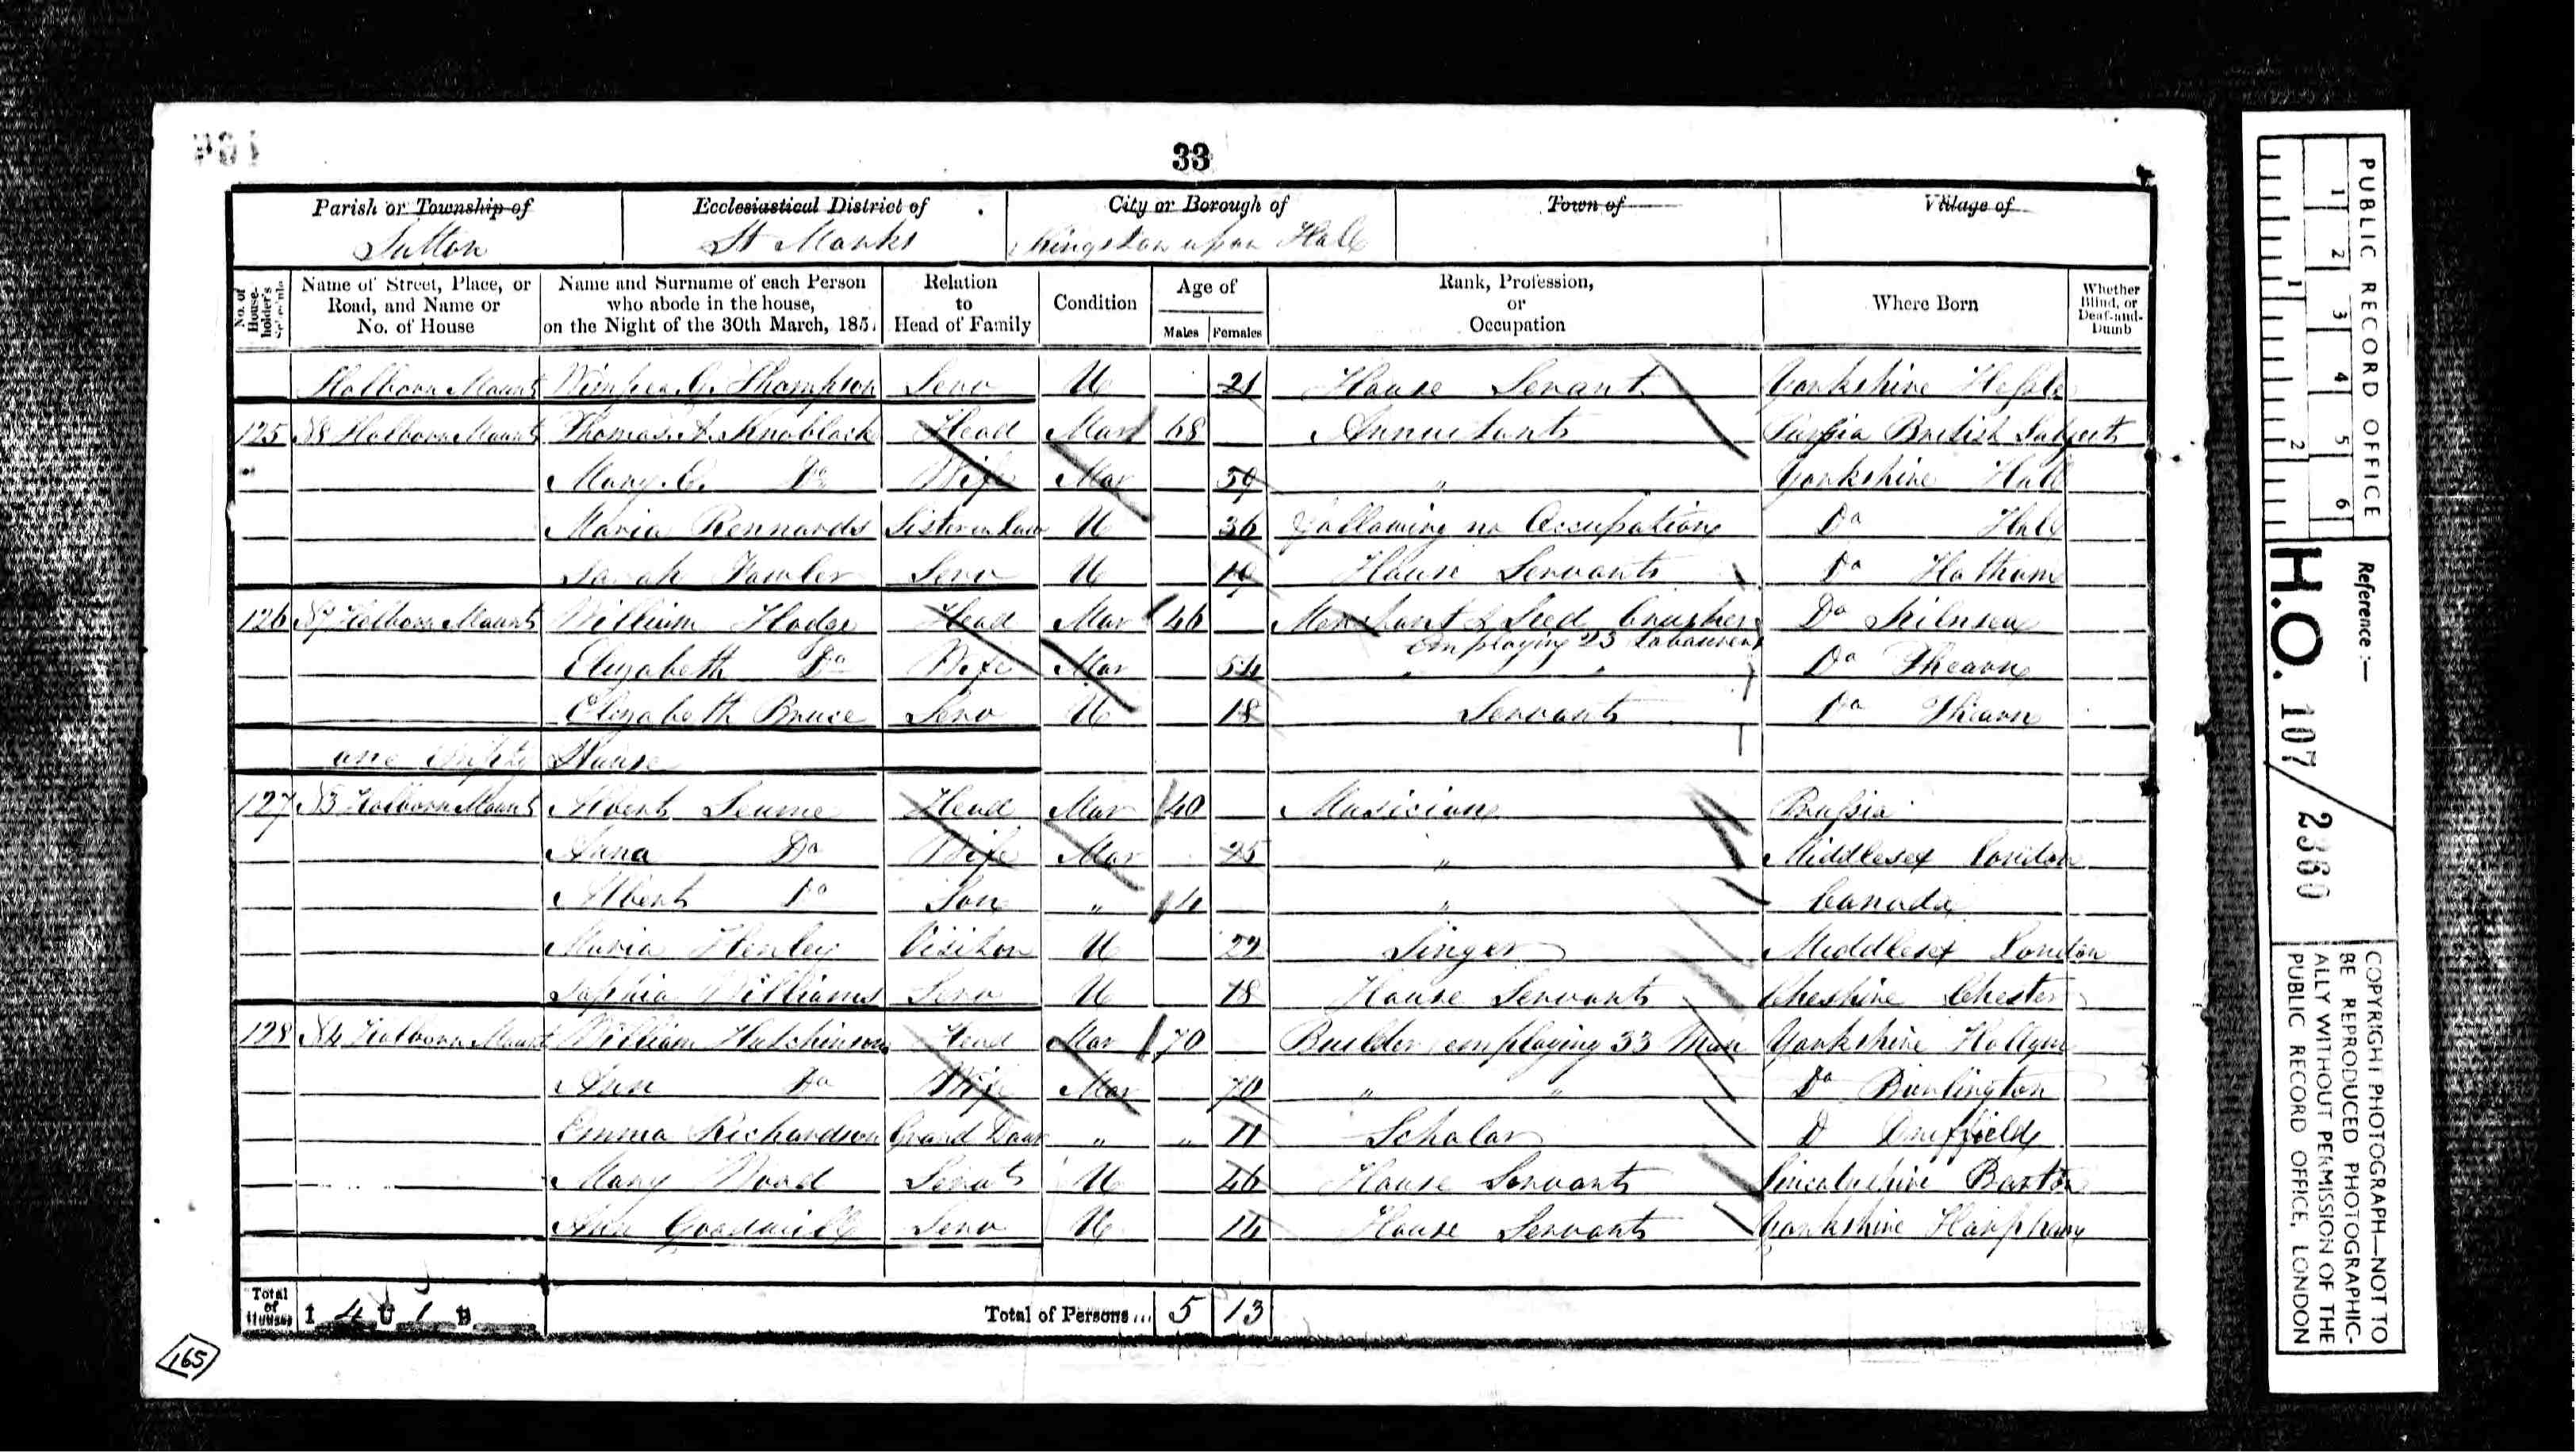 164
33
Parish or Township of
Ecclesiastical District of
City or Borough of
Town of
Village of
Sutton
St Marks
Kingston upon Hull
No. of House-holder's Schedule
Name of Street, Place, or Road, and Name or No. of House
Name and Surname of each Person who abode in the house, on the Night of the 30th March, 1851
Relation to Head of Family
Condition
Age of
Males Females
Rank, Profession, or Occupation
Where Born
Whether Blind, or Deaf-and-Dumb
Holborn Mount Thompson Serv U 21 House Servant Yorkshire Hessle
125 N8 Holborn Mount Thomas Knoblock Head Mar 68 Annuitant British Subject
Mary Do Wife Mar 59 " Yorkshire Hull
Maria Rennards Sister in Law U 36 following no Occupation Do Hull
Sarah Fowler Serv U 19 House Servant Do Hotham
126 N7 Holborn Mount William Hodge Head Mar 46 Merchant & Seed Crusher Do Kilnsea
employing 23 Labourers
Elizabeth Do Wife Mar 54 " " Do Thearn
Elizabeth Bruce Serv U 18 Servant Do Thearn
one Empty House
127 N3 Holborn Mount Albert Seume Head Mar 40 Musician
Anna Do Wife Mar 25 " Middlesex London
Albert Do Son " 4 " Canada
Maria Henley Visitor U 22 Singer Middlesex London
Sophia Williams Serv U 18 House Servant Cheshire Chester
128 N4 Holborn Mount William Hutchinson Head Mar 70 Builder employing 33 Men Yorkshire Hollym
Ann Do Wife Mar 70 " " Do Burlington
Emma Richardson Grand Daur " " 11 Scholar D Driffield
Mary Wood Servt U 46 House Servant Lincolnshire Barton
Ann Goodwill Serv U 14 House Servant Yorkshire Harpham
Total of Houses I 4 U 1 B
Total of Persons... 5 13
165
PUBLIC RECORD OFFICE
1 2 3 4 5 6
1 2
Reference :—
H.O. 107/2360
COPYRIGHT PHOTOGRAPH—NOT TO
BE REPRODUCED PHOTOGRAPHIC-
ALLY WITHOUT PERMISSION OF THE
PUBLIC RECORD OFFICE, LONDON